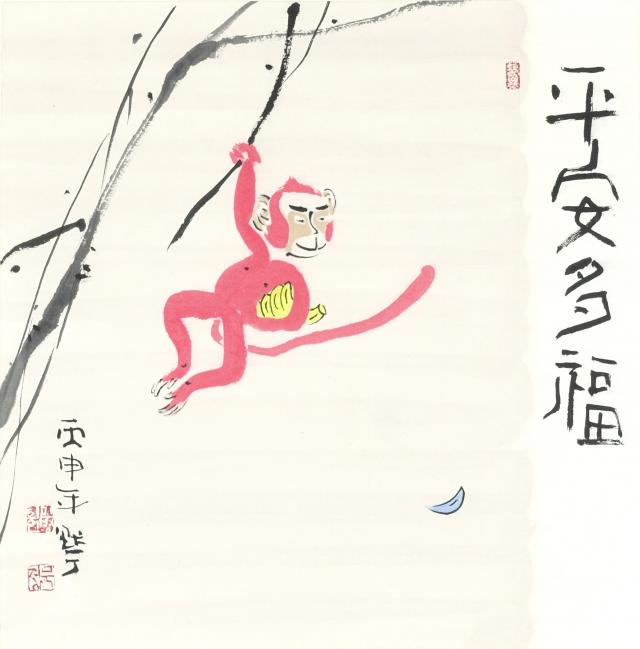 平安多福
丙申年